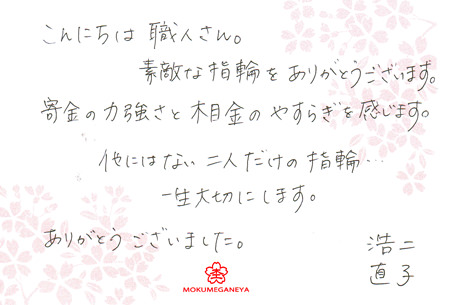 こんにちは 職人さん。
素敵な指輪をありがとうございます。
寄金の力強さと木目金のやすらぎを感じます。
他にはない二人だけの指輪…
一生大切にします。
ありがとうございました。
浩二
直子
MOKUMEGANEYA